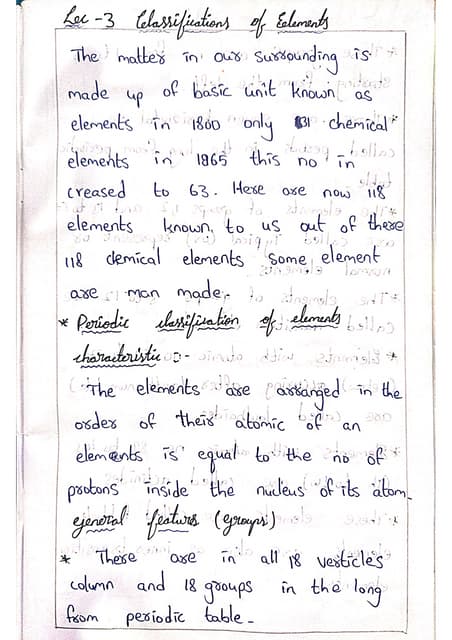 Lec - 3 Classifications of Elements
The matter in our surrounding is
made up of basic unit known as
elements in 1800 only 31 chemical
elements in 1865 this no in
creased to 63. Here are now 118
elements known to us out of there
118 chemical elements some element
are man made.
* Periodic classification of elements
characteristic :-
The elements are arranged in the
order of their atomic of an
elements is equal to the no of
protons inside the nucleus of its atom.
general features (groups)
* There are in all 18 verticles
column and 18 groups in the long
from periodic table.